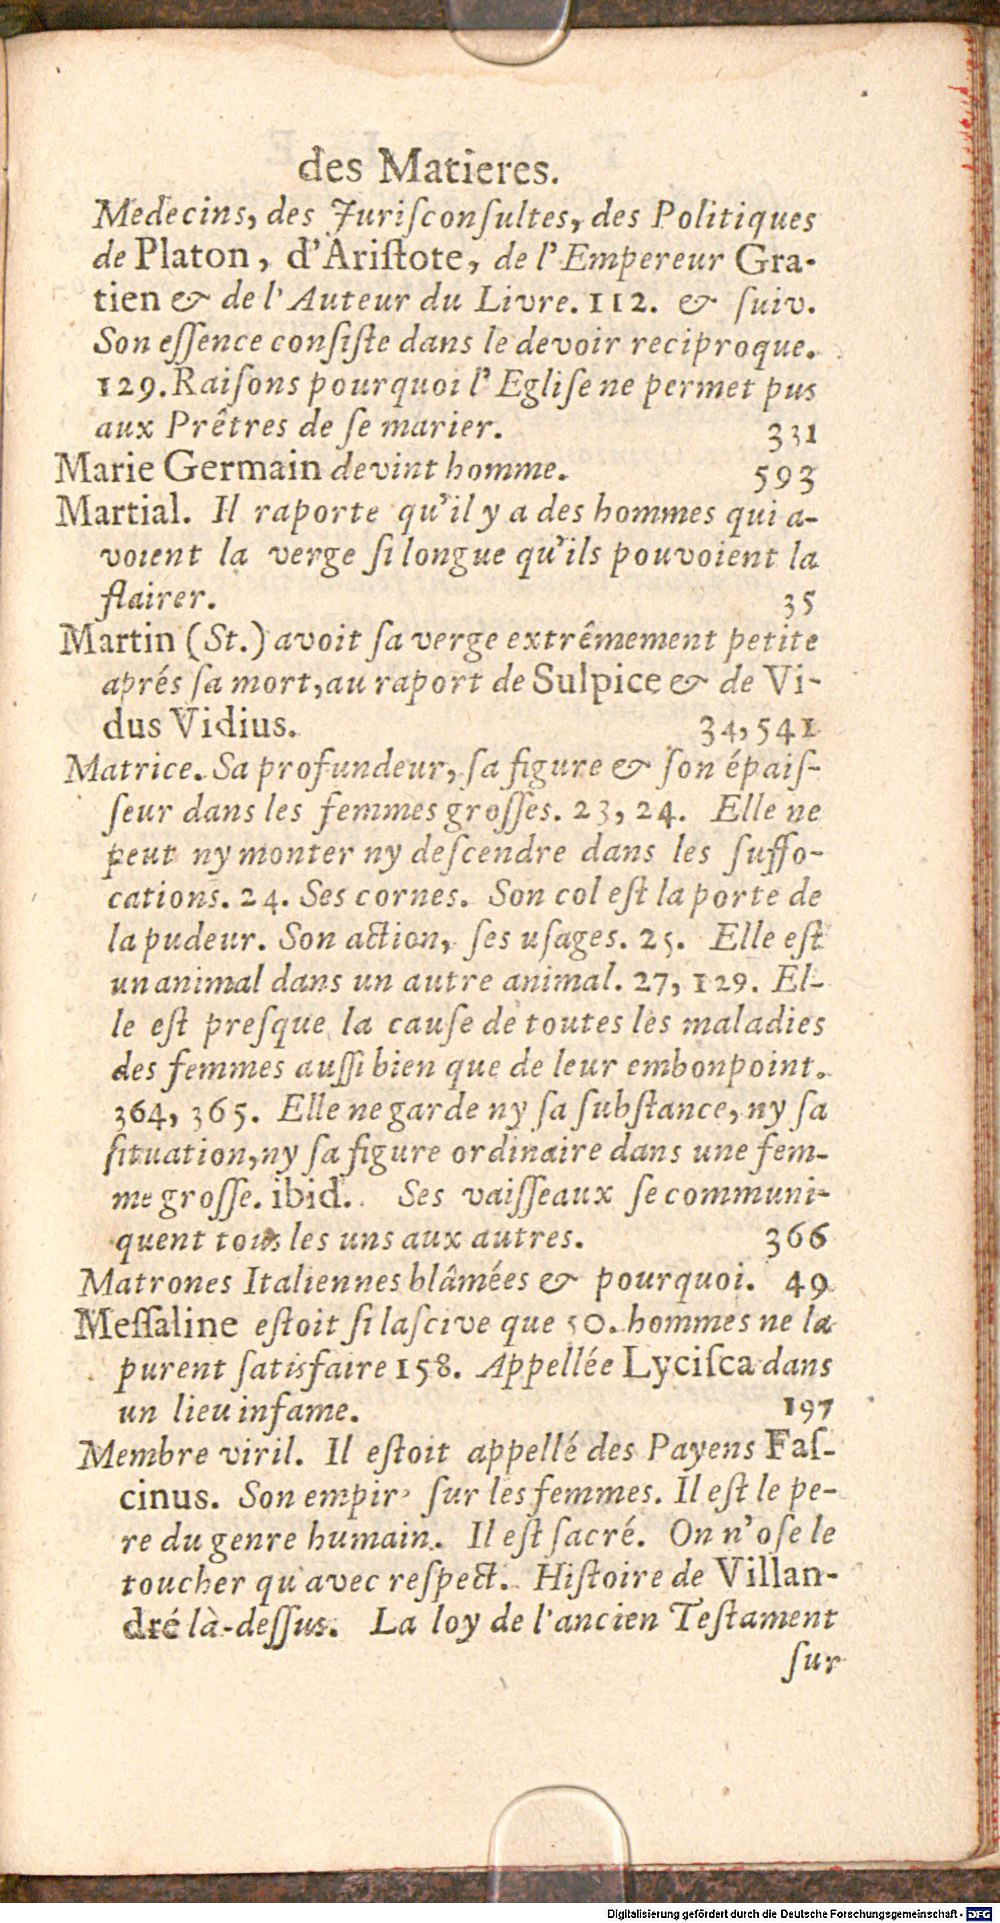 des Matieres.
Medecins, des Juriſconſultes, des Politiques
de Platon, d'Ariſtote, de l'Empereur Gra-
tien & de l'Auteur du Livre. 112. & ſuiv.
Son eſſence conſiſte dans le devoir reciproque.
129. Raiſons pourquoi l'Egliſe ne permet pas
aux Prêtres de ſe marier. 331
Marie Germain devint homme. 593
Martial. Il raporte qu'il y a des hommes qui a-
voient la verge ſi longue qu'ils pouvoient la
flairer. 35
Martin (St.) avoit ſa verge extrêmement petite
aprés ſa mort, au raport de Sulpice & de Vi-
dus Vidius. 34, 541
Matrice. Sa profundeur, ſa figure & ſon épaiſ-
ſeur dans les femmes groſſes. 23, 24. Elle ne
peut ny monter ny deſcendre dans les ſuffo-
cations. 24. Ses cornes. Son col eſt la porte de
la pudeur. Son action, ſes uſages. 25. Elle eſt
un animal dans un autre animal. 27, 129. El-
le eſt preſque la cauſe de toutes les maladies
des femmes auſſi bien que de leur embonpoint.
364, 365. Elle ne garde ny ſa ſubſtance, ny ſa
ſituation, ny ſa figure ordinaire dans une fem-
me groſſe. ibid. Ses vaiſſeaux ſe communi-
quent tous les uns aux autres. 366
Matrones Italiennes blâmées & pourquoi. 49
Meſſaline eſtoit ſi laſcive que 50. hommes ne la
purent ſatisfaire 158. Appellée Lyciſca dans
un lieu infame. 197
Membre viril. Il eſtoit appellé des Payens Faſ-
cinus. Son empir ſur les femmes. Il eſt le pe-
re du genre humain. Il eſt ſacré. On n'oſe le
toucher qu'avec reſpect. Hiſtoire de Villan-
dré là-deſſus. La loy de l'ancien Teſtament
ſur
Digitalisierung gefördert durch die Deutsche Forschungsgemeinschaft - DFG